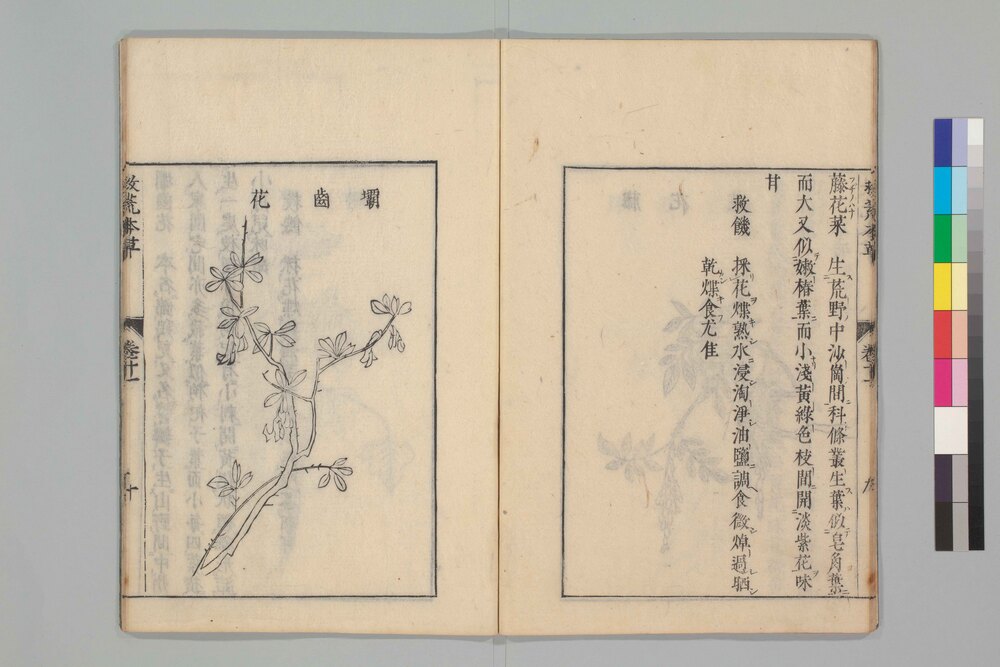 救荒本草
卷十一
九
藤花菜 生荒野中沙崗間科條叢生葉似皂角葉
而大又似嫩椿葉而小淺黃綠色枝間開淡紫花味
甘
救饑 採花煠熟水浸淘淨油鹽調食微焯過晒
乾煠食尤佳
壩齒花
救荒本草
卷十一
十